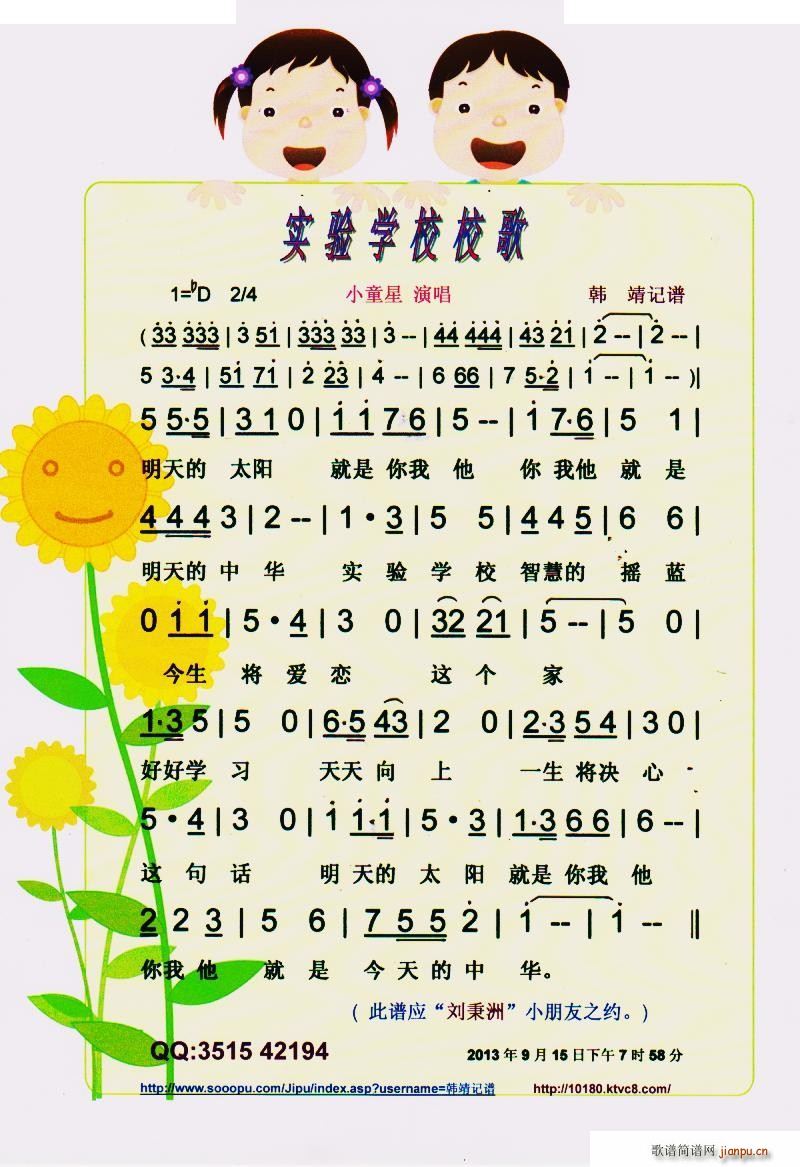 实验学校校歌
1=♭D 2/4 小童星 演唱 韩 靖记谱
( 33 333 | 3 51 | 333 33 | 3 -- | 44 444 | 43 21 | 2 -- | 2 -- |
5 3·4 | 51 71 | 2 23 | 4 -- | 6 66 | 7 5·2 | 1 -- | 1 -- )|
5 5·5 | 3 1 0 | 1 1 7 6 | 5 -- | 1 7·6 | 5 1 |
明天的 太阳 就是 你我 他 你 我他 就 是
4 4 4 3 | 2 -- | 1 · 3 | 5 5 | 4 4 5 | 6 6 |
明天的 中 华 实 验 学 校 智慧的 摇 蓝
0 1 1 | 5 · 4 | 3 0 | 32 21 | 5 -- | 5 0 |
今生 将 爱 恋 这 个 家
1·3 5 | 5 0 | 6·5 43 | 2 0 | 2·3 5 4 | 3 0 |
好好学 习 天天 向 上 一生 将决 心
5 · 4 | 3 0 | 1 1·1 | 5 · 3 | 1·3 6 6 | 6 -- |
这 句 话 明 天的 太 阳 就是 你我 他
2 2 3 | 5 6 | 7 5 5 2 | 1 -- | 1 -- ‖
你我 他 就 是 今 天 的 中 华。
( 此谱应“刘秉洲”小朋友之约。)
QQ:3515 42194 2013 年 9 月 15 日下午 7 时 58 分
http://www.sooopu.com/Jipu/index.asp?username=韩靖记谱 http://10180.ktvc8.com/
歌谱简谱网
jianpu.cn